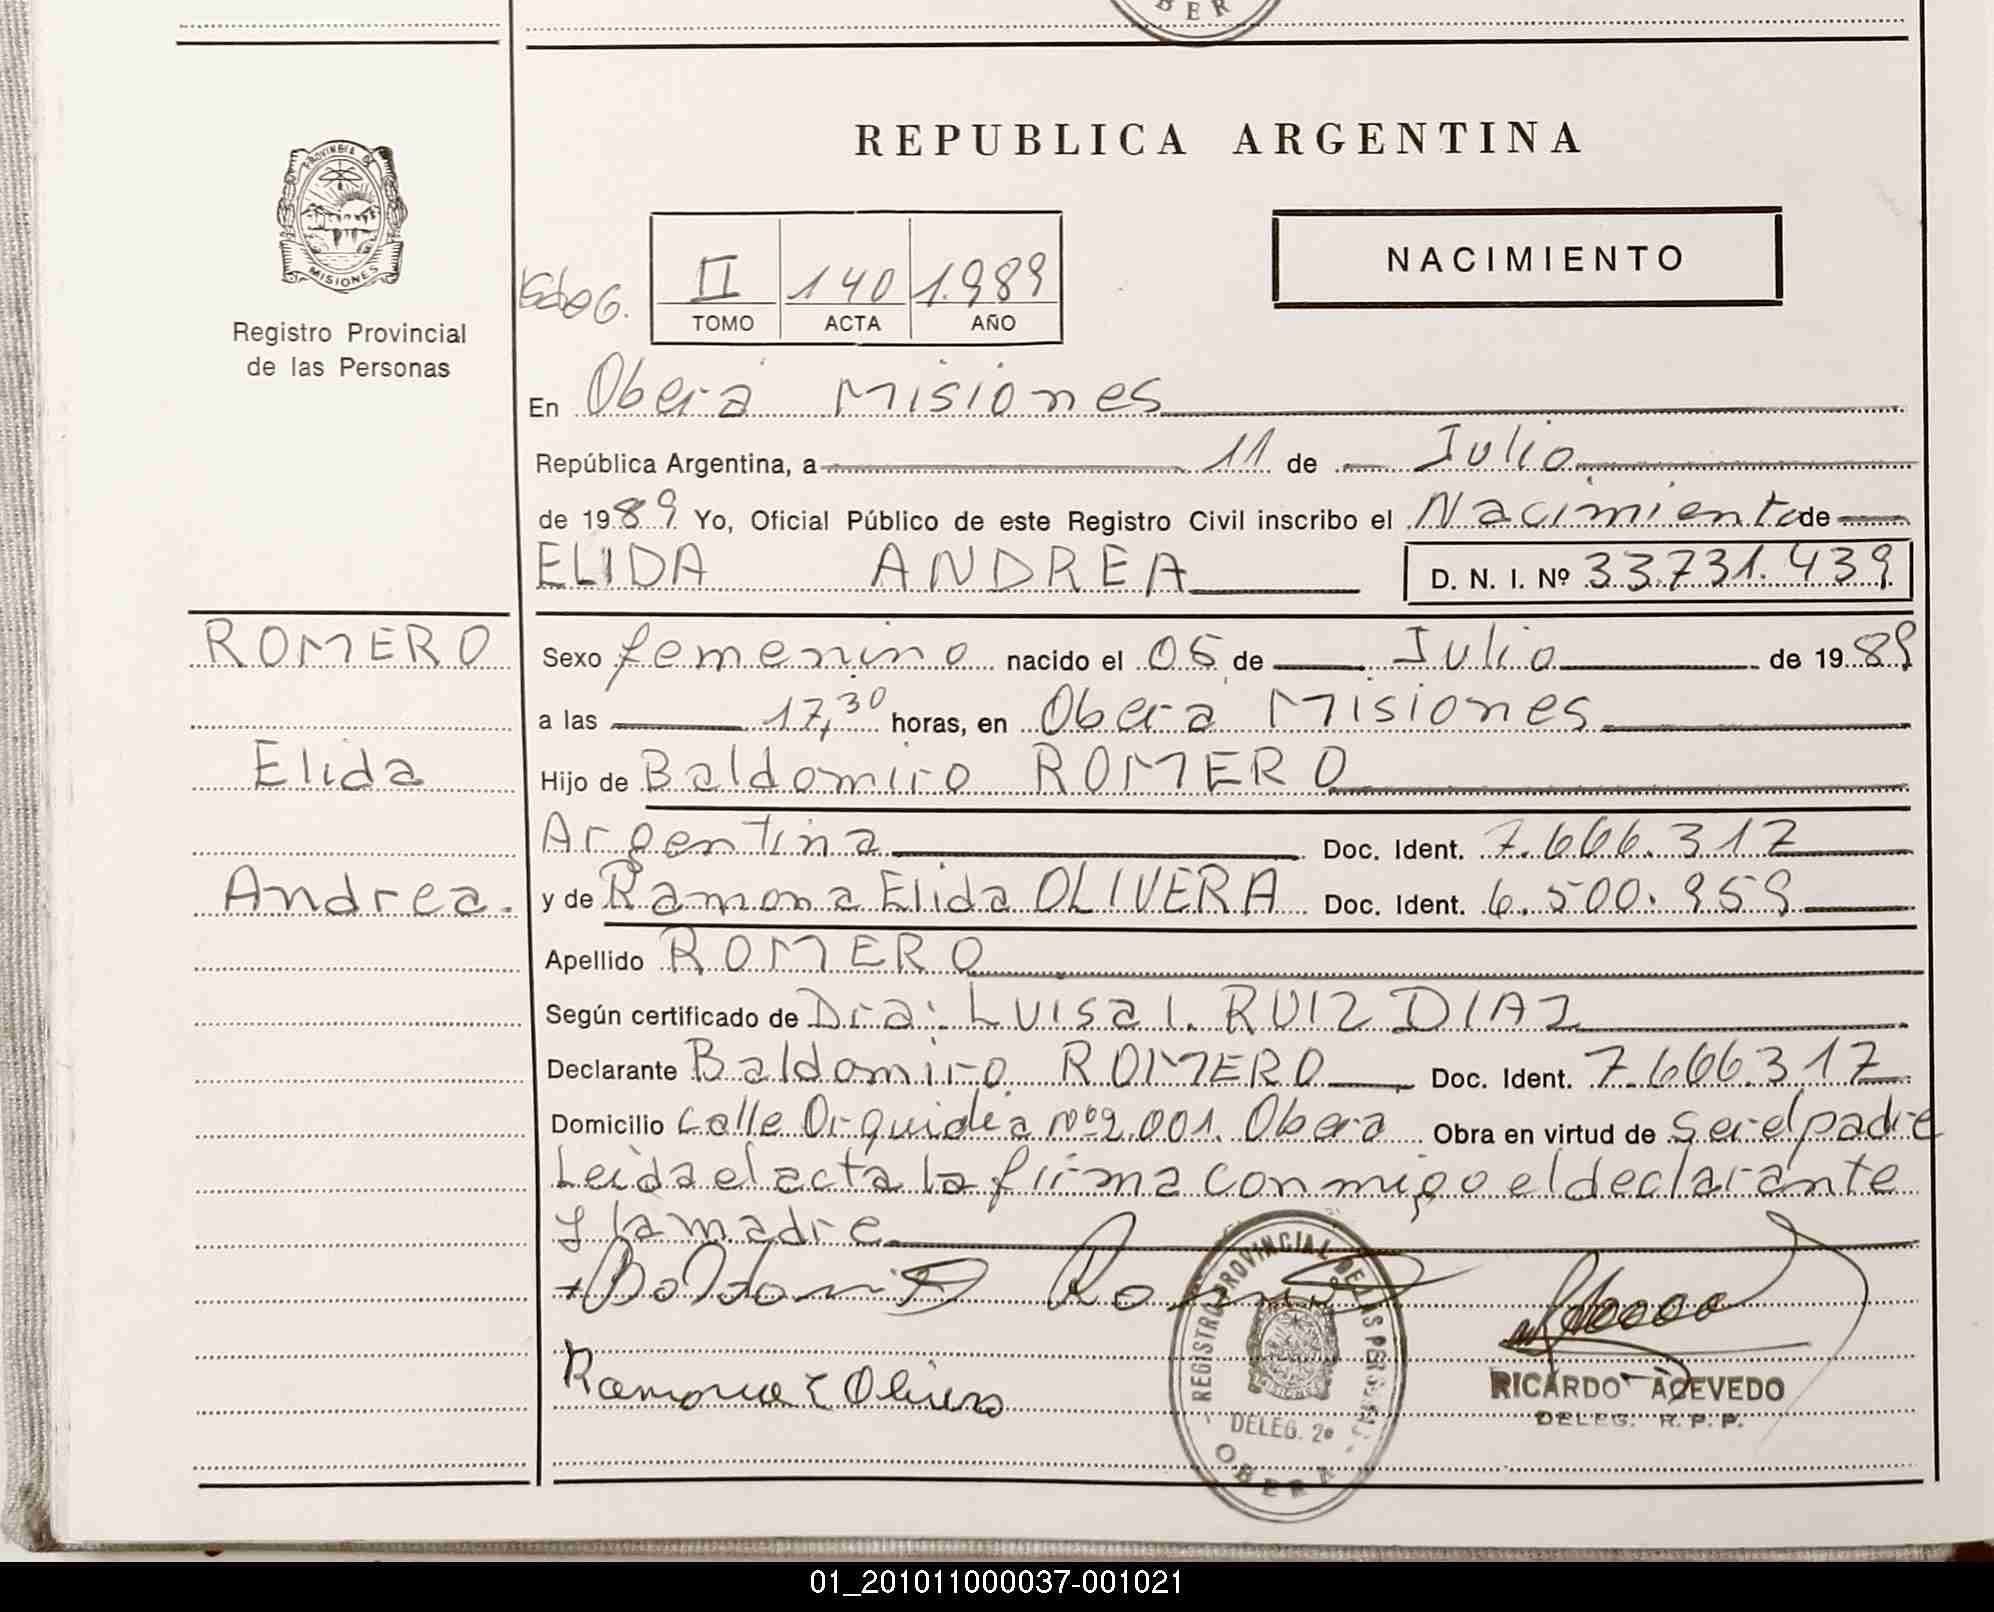 OBER
REPUBLICA ARGENTINA
PROVINCIA DE MISIONES
Registro Provincial
de las Personas
II 140 1.989
TOMO ACTA AÑO
NACIMIENTO
En Oberá Misiones
República Argentina, a 11 de Julio
de 1989 Yo, Oficial Público de este Registro Civil inscribo el Nacimiento de
ELIDA ANDREA D. N. I. Nº 33.731.439
ROMERO
Sexo femenino nacido el 05 de Julio de 1989
a las 17,30 horas, en Oberá Misiones
Elida
Hijo de Baldomiro ROMERO
Argentina Doc. Ident. 7.666.317
Andrea.
y de Ramona Elida OLIVERA Doc. Ident. 6.500.959
Apellido ROMERO
Según certificado de Dra: Luisa I. RUIZ DIAZ
Declarante Baldomiro ROMERO Doc. Ident. 7.666.317
Domicilio calle Orquidia Nº 2.001. Oberá Obra en virtud de ser el padre
Leida el acta la firma conmigo el declarante
y la madre
Ramona E Olivera
REGISTRO PROVINCIAL DE LAS PERSONAS
DELEG. 2º
OBERA
RICARDO ACEVEDO
DELEG. R. P. P.
01_201011000037-001021